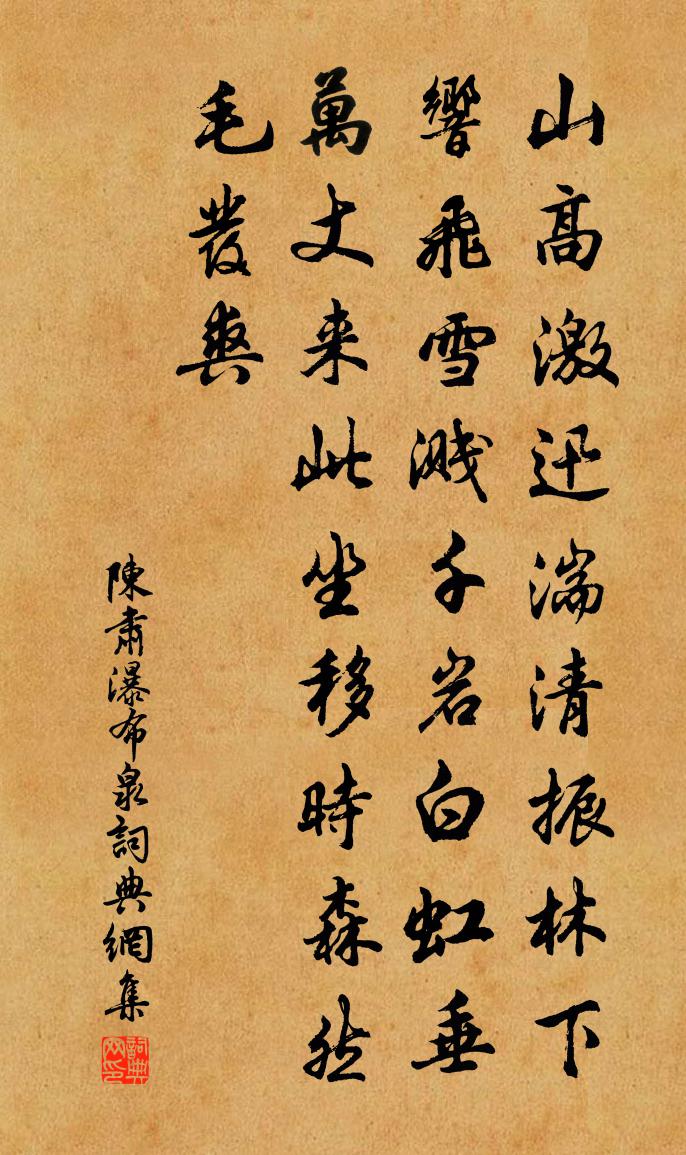 山高激迅湍清振林下
響飛雪濺千岩白虹垂
萬丈来此坐移時森然
毛發爽
陳肅瀑布泉詞典網集
詞典網印